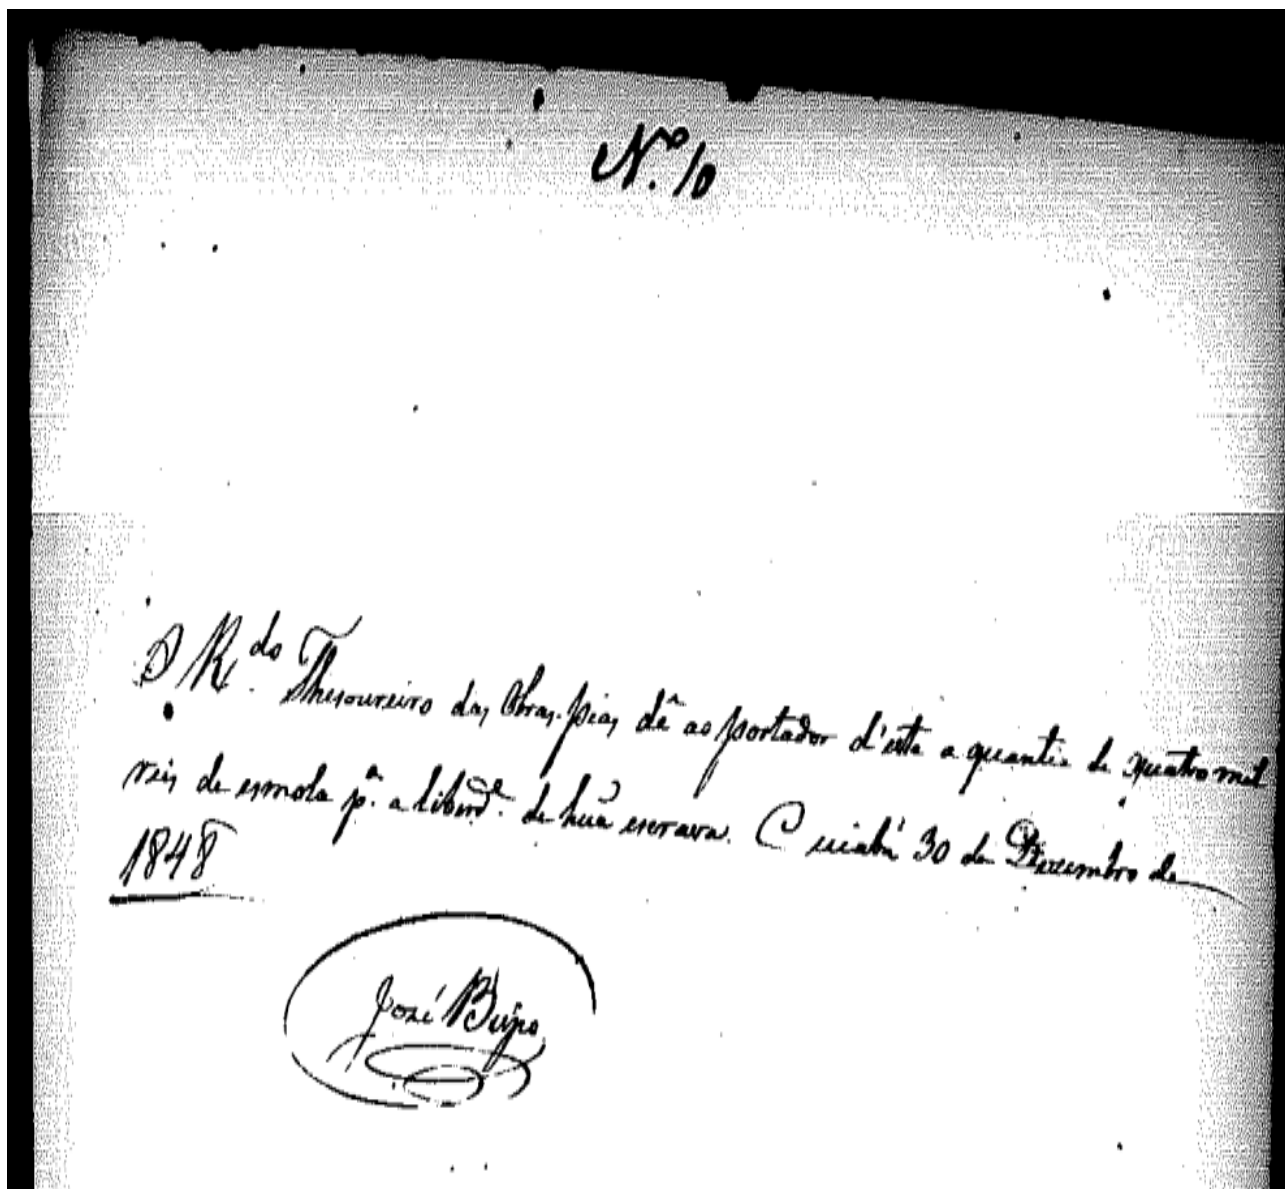 N.º 10
O R.do Thesoureiro das Obras pias dê ao portador d'esta a quantia de quatro mil
reis de esmola p.a a liberd.e de huã escrava. Cuiabá 30 de Dezembro de
1848
José Bispo